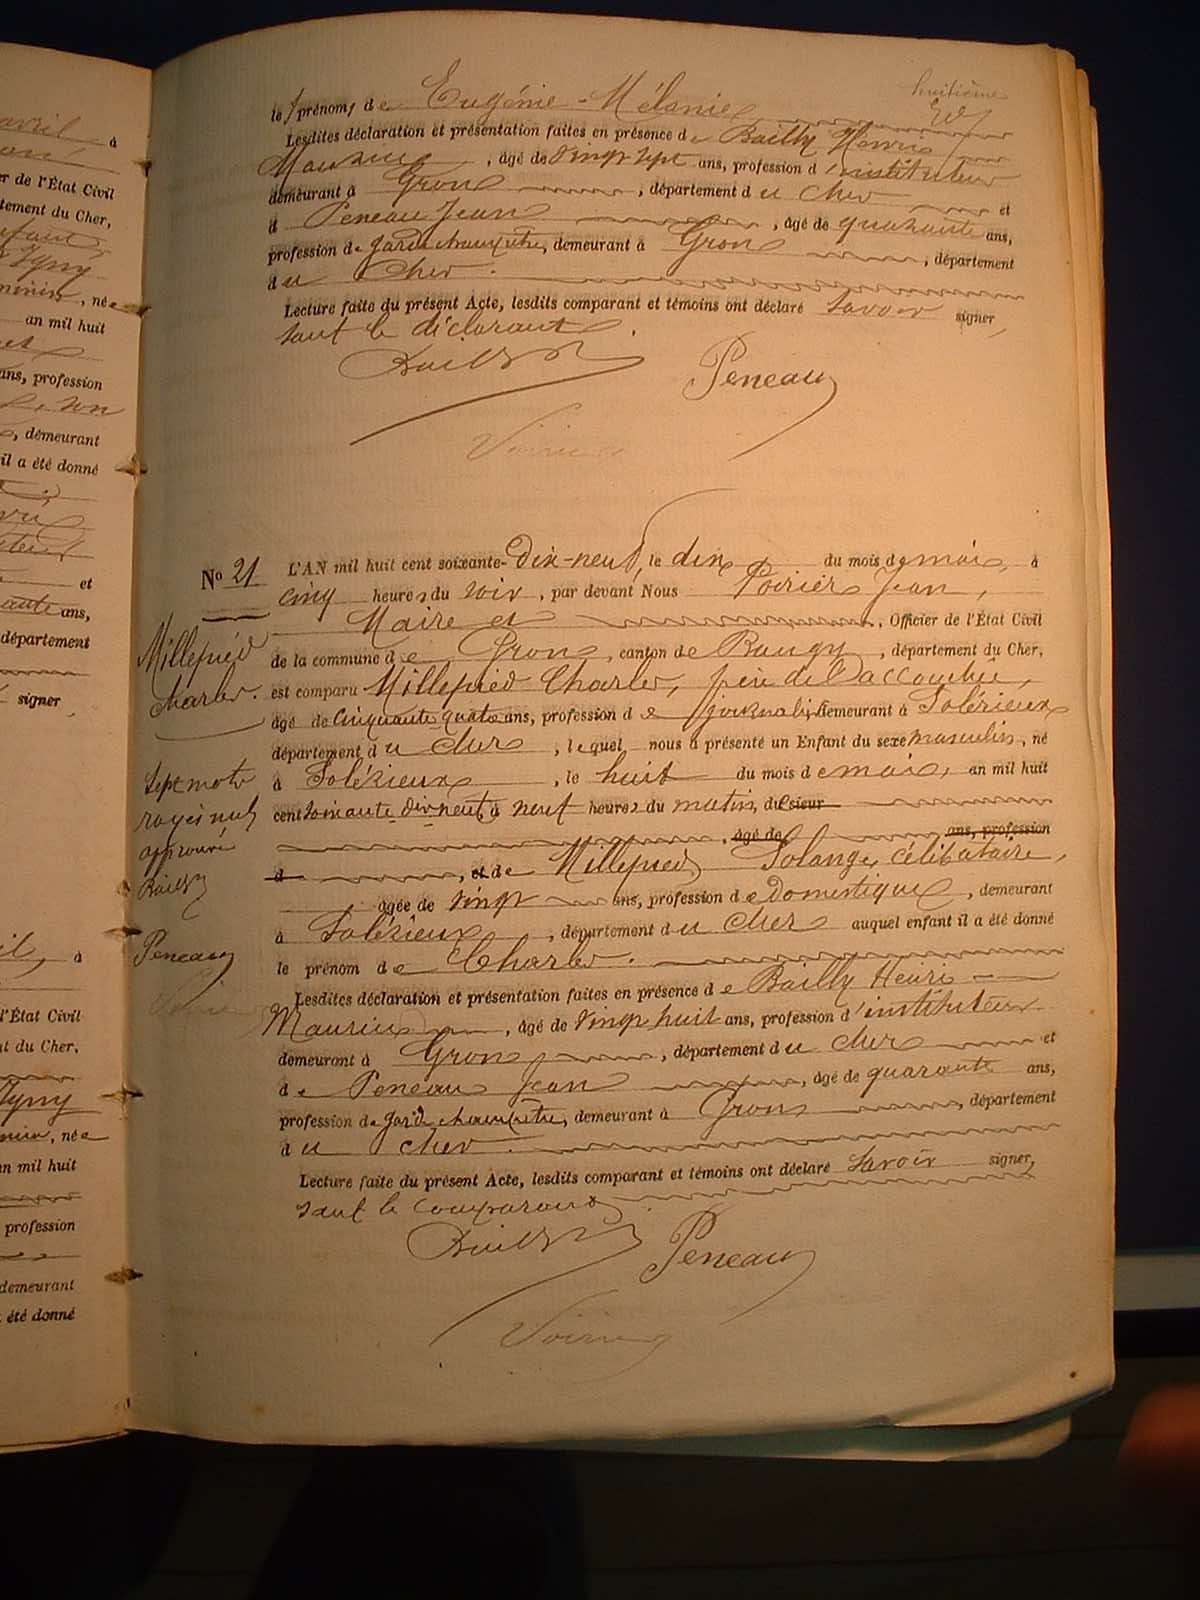 avril à
er de l'État Civil
tement du Cher,
, née
an mil huit
ans, profession
son
, demeurant
il a été donné
et
ans,
département
signer
à
l'État Civil
nt du Cher,
, née
n mil huit
profession
demeurant
été donné
huitième
le prénom de Eugénie-Mélanie
Lesdites déclaration et présentation faites en présence de Bailly Henri
Maurice, âgé de vingt sept ans, profession d'instituteur
demeurant à Gron, département du Cher et
d Peneau Jean, âgé de quarante ans,
profession de garde champêtre, demeurant à Gron, département
du Cher.
Lecture faite du présent Acte, lesdits comparant et témoins ont déclaré savoir signer,
sauf le déclarant.
Bailly Peneau
No 21
L'AN mil huit cent soixante-Dix-neuf, le dix du mois de mai, à
cinq heures du soir, par devant Nous Jean,
Maire et, Officier de l'État Civil
de la commune de Gron, canton de Baugy, département du Cher,
est comparu Millepied Charles, père de l'accouchée,
âgé de cinquante quatre ans, profession de journalier demeurant à Solérieux
département du Cher, lequel nous a présenté un Enfant du sexe masculin, né
à Solérieux, le huit du mois de mai, an mil huit
cent soixante dix neuf, à neuf heures du matin, du sieur
, âgé de ans, profession
d, et de Millepied Solange, célibataire,
âgée de vingt ans, profession de Domestique, demeurant
à Solérieux, département du Cher auquel enfant il a été donné
le prénom de Charles.
Lesdites déclaration et présentation faites en présence de Bailly Henri
Maurice, âgé de vingt huit ans, profession d'instituteur
demeurant à Gron, département du Cher et
de Peneau Jean, âgé de quarante ans,
profession de garde champêtre, demeurant à Gron, département
du Cher.
Lecture faite du présent Acte, lesdits comparant et témoins ont déclaré savoir signer,
sauf le comparant
Bailly Peneau
Millepied
Charles.
Sept mots
rayés nuls
approuvé
Bailly
Peneau